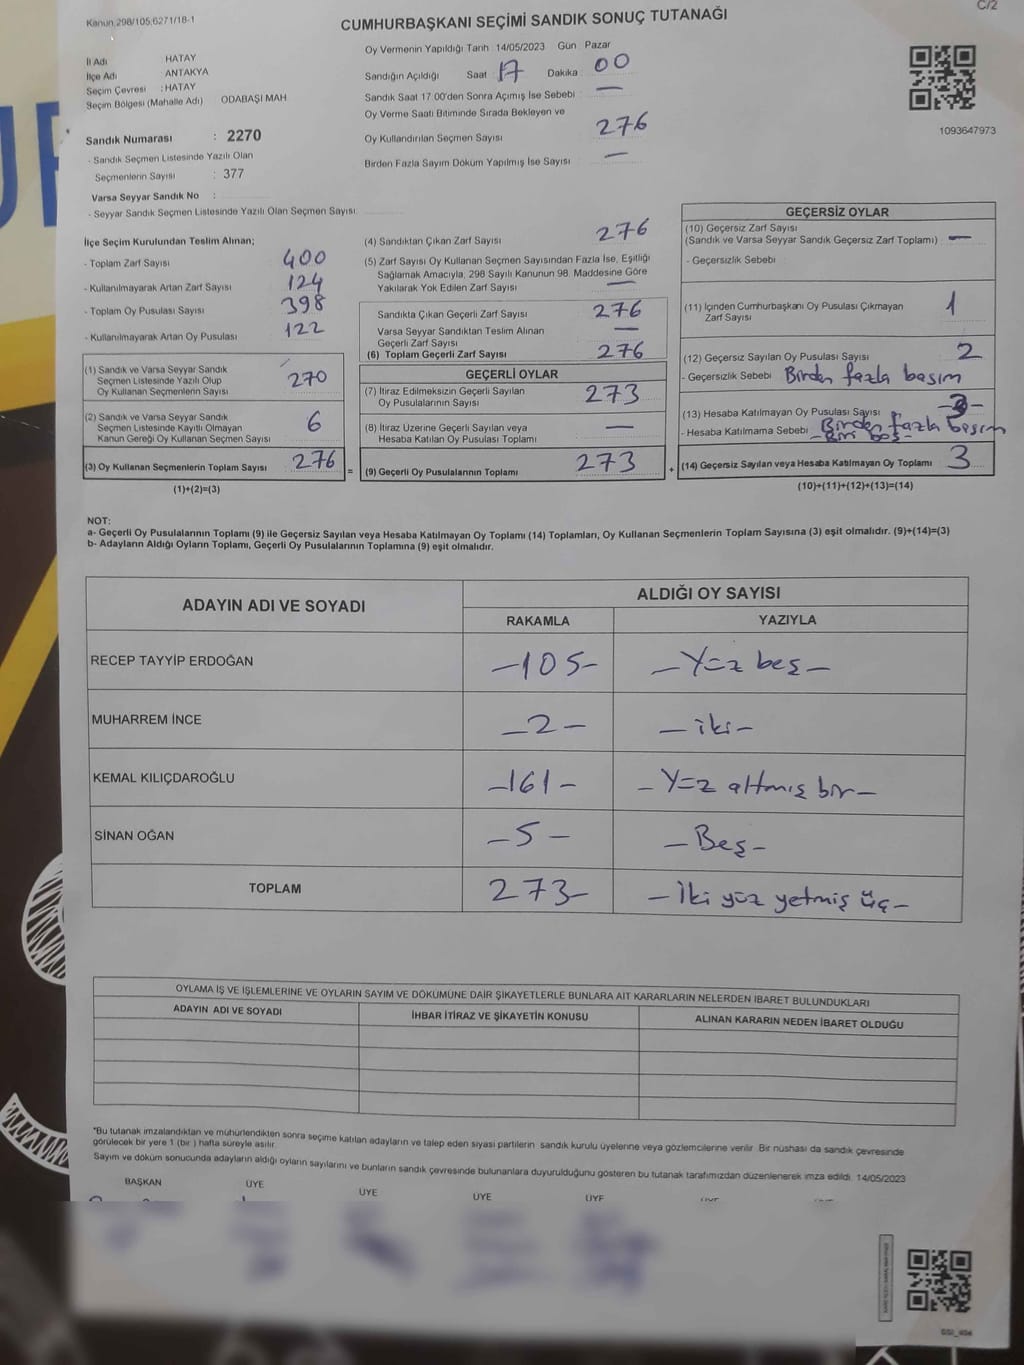 C/2
Kanun 298/105:6271/18-1
CUMHURBAŞKANI SEÇİMİ SANDIK SONUÇ TUTANAĞI
Oy Vermenin Yapıldığı Tarih :14/05/2023 Gün Pazar
İl Adı HATAY
İlçe Adı ANTAKYA
Seçim Çevresi : HATAY
Seçim Bölgesi (Mahalle Adı) ODABAŞI MAH
Sandığın Açıldığı Saat 17 Dakika 00
Sandık Saat 17.00'den Sonra Açımış İse Sebebi : —
Oy Verme Saati Bitiminde Sırada Bekleyen ve
Oy Kullandırılan Seçmen Sayısı 276
Birden Fazla Sayım Döküm Yapılmış İse Sayısı —
1093647973
Sandık Numarası : 2270
- Sandık Seçmen Listesinde Yazılı Olan
Seçmenlerin Sayısı : 377
Varsa Seyyar Sandık No :
- Seyyar Sandık Seçmen Listesinde Yazılı Olan Seçmen Sayısı:
İlçe Seçim Kurulundan Teslim Alınan;
- Toplam Zarf Sayısı 400
- Kullanılmayarak Artan Zarf Sayısı 124
- Toplam Oy Pusulası Sayısı 398
- Kullanılmayarak Artan Oy Pusulası 122
(1) Sandık ve Varsa Seyyar Sandık
Seçmen Listesinde Yazılı Olup
Oy Kullanan Seçmenlerin Sayısı 270
(2) Sandık ve Varsa Seyyar Sandık
Seçmen Listesinde Kayıtlı Olmayan
Kanun Gereği Oy Kullanan Seçmen Sayısı 6
(3) Oy Kullanan Seçmenlerin Toplam Sayısı 276
(1)+(2)=(3)
(4) Sandıktan Çıkan Zarf Sayısı 276
(5) Zarf Sayısı Oy Kullanan Seçmen Sayısından Fazla İse, Eşitliği
Sağlamak Amacıyla, 298 Sayılı Kanunun 98. Maddesine Göre
Yakılarak Yok Edilen Zarf Sayısı —
Sandıkta Çıkan Geçerli Zarf Sayısı 276
Varsa Seyyar Sandıktan Teslim Alınan
Geçerli Zarf Sayısı —
(6) Toplam Geçerli Zarf Sayısı 276
GEÇERLİ OYLAR
(7) İtiraz Edilmeksizin Geçerli Sayılan
Oy Pusulalarının Sayısı 273
(8) İtiraz Üzerine Geçerli Sayılan veya
Hesaba Katılan Oy Pusulası Toplamı —
= (9) Geçerli Oy Pusulalarının Toplamı 273
GEÇERSİZ OYLAR
(10) Geçersiz Zarf Sayısı
(Sandık ve Varsa Seyyar Sandık Geçersiz Zarf Toplamı) —
- Geçersizlik Sebebi
(11) İçinden Cumhurbaşkanı Oy Pusulası Çıkmayan
Zarf Sayısı 1
(12) Geçersiz Sayılan Oy Pusulası Sayısı 2
- Geçersizlik Sebebi Birden fazla basım
(13) Hesaba Katılmayan Oy Pusulası Sayısı
- Hesaba Katılmama Sebebi : Birden fazla basım
- Biri boş -
+ (14) Geçersiz Sayılan veya Hesaba Katılmayan Oy Toplamı 3
(10)+(11)+(12)+(13)=(14)
NOT:
a- Geçerli Oy Pusulalarının Toplamı (9) ile Geçersiz Sayılan veya Hesaba Katılmayan Oy Toplamı (14) Toplamları, Oy Kullanan Seçmenlerin Toplam Sayısına (3) eşit olmalıdır. (9)+(14)=(3)
b- Adayların Aldığı Oyların Toplamı, Geçerli Oy Pusulalarının Toplamına (9) eşit olmalıdır.
ADAYIN ADI VE SOYADI ALDIĞI OY SAYISI
RAKAMLA YAZIYLA
RECEP TAYYİP ERDOĞAN -105- - Yüz beş -
MUHARREM İNCE -2- - iki -
KEMAL KILIÇDAROĞLU -161- - Yüz altmış bir -
SİNAN OĞAN -5- - Beş -
TOPLAM 273- - İki yüz yetmiş üç -
OYLAMA İŞ VE İŞLEMLERİNE VE OYLARIN SAYIM VE DÖKÜMÜNE DAİR ŞİKAYETLERLE BUNLARA AİT KARARLARIN NELERDEN İBARET BULUNDUKLARI
ADAYIN ADI VE SOYADI İHBAR İTİRAZ VE ŞİKAYETİN KONUSU ALINAN KARARIN NEDEN İBARET OLDUĞU
*Bu tutanak imzalandıktan ve mühürlendikten sonra seçime katılan adayların ve talep eden siyasi partilerin sandık kurulu üyelerine veya gözlemcilerine verilir. Bir nüshası da sandık çevresinde
görülecek bir yere 1 (bir) hafta süreyle asılır.
Sayım ve döküm sonucunda adayların aldığı oyların sayılarını ve bunların sandık çevresinde bulunanlara duyurulduğunu gösteren bu tutanak tarafımızdan düzenlenerek imza edildi. 14/05/2023
BAŞKAN ÜYE ÜYE ÜYE ÜYE